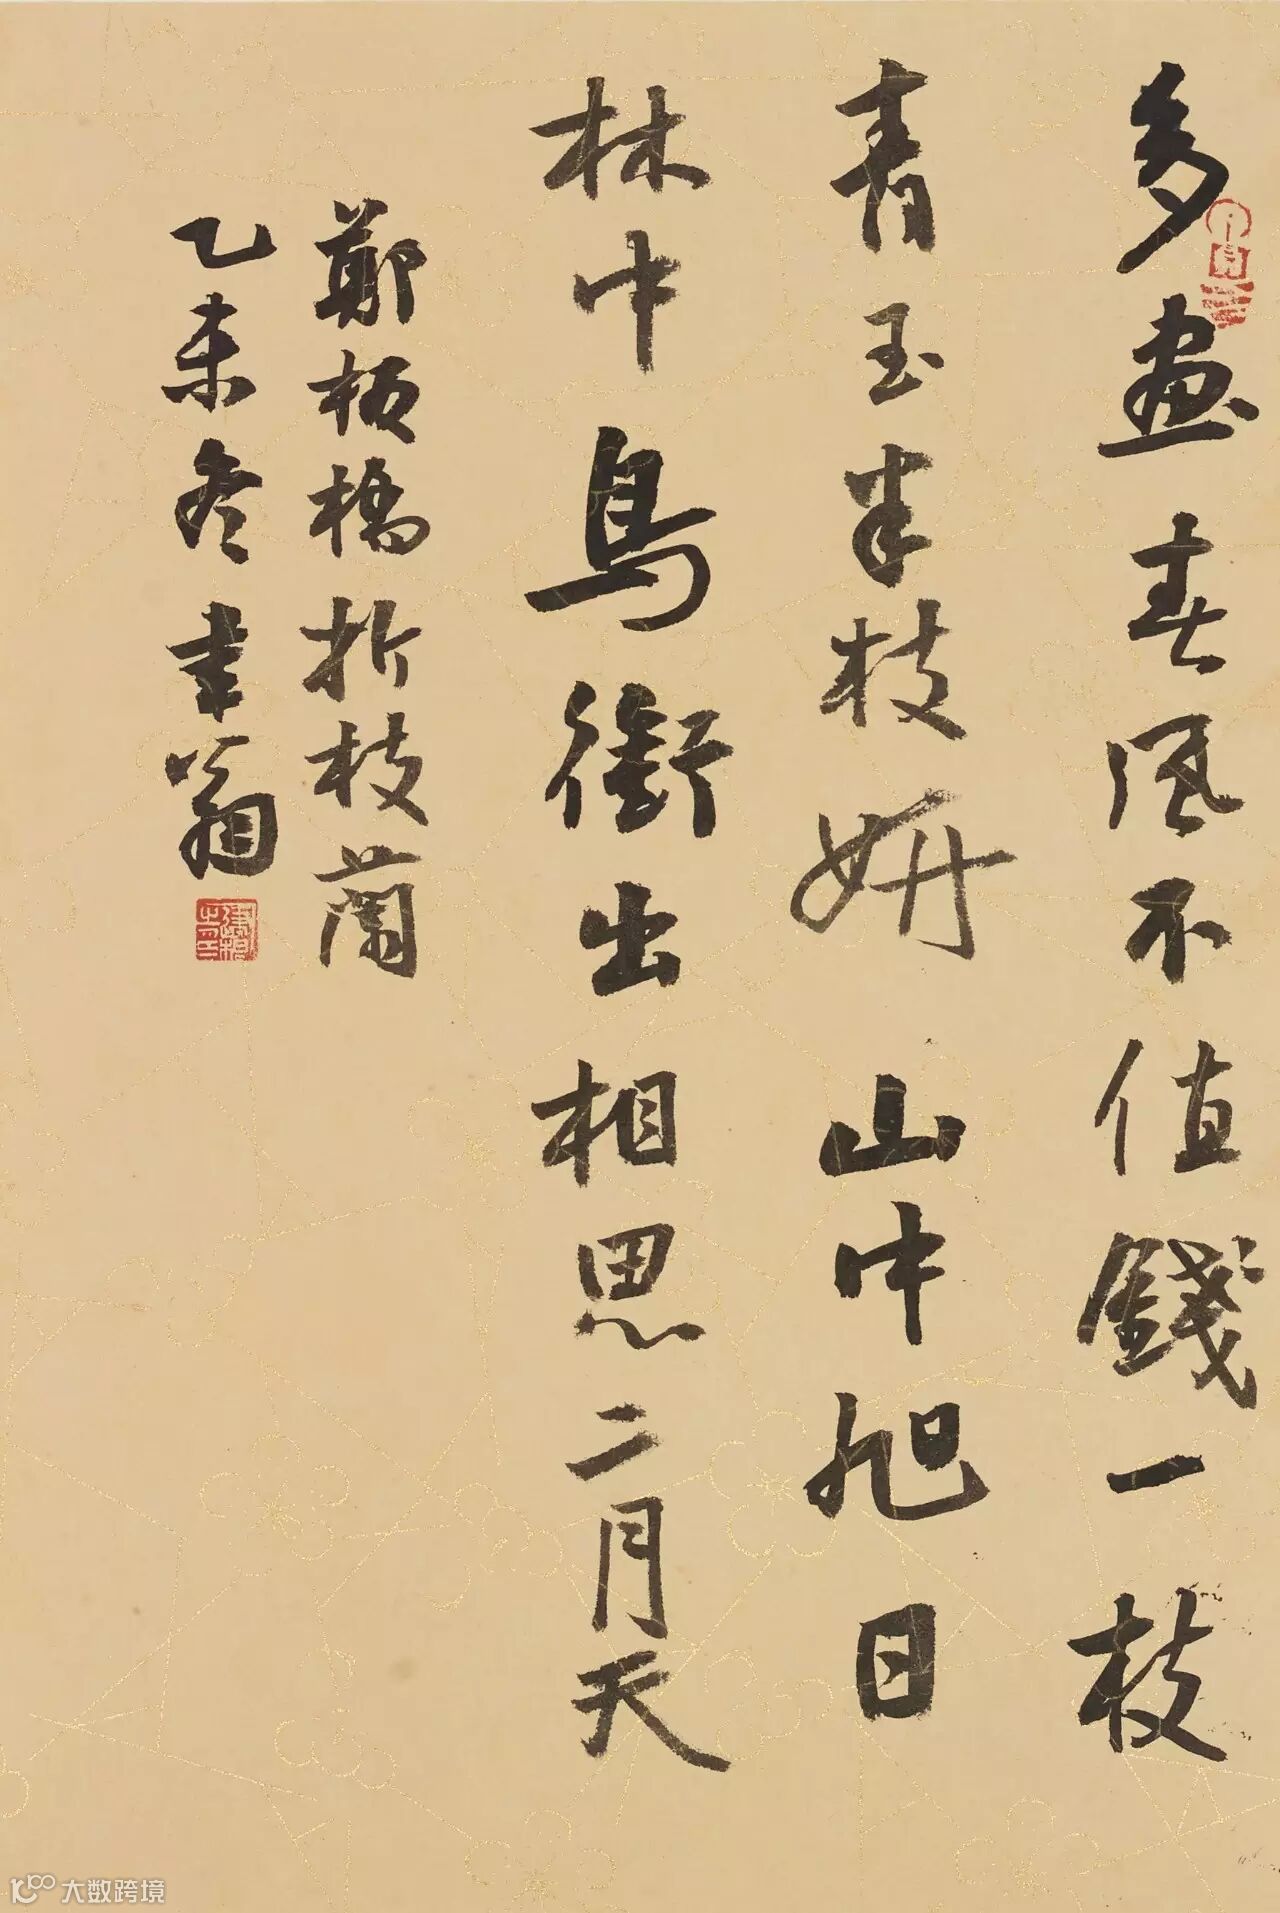 多畫春風不值錢一枝
青玉半枝妍山中旭日
林中鳥銜出相思二月天
鄭板橋折枝蘭
乙未冬聿翁
大数跨境